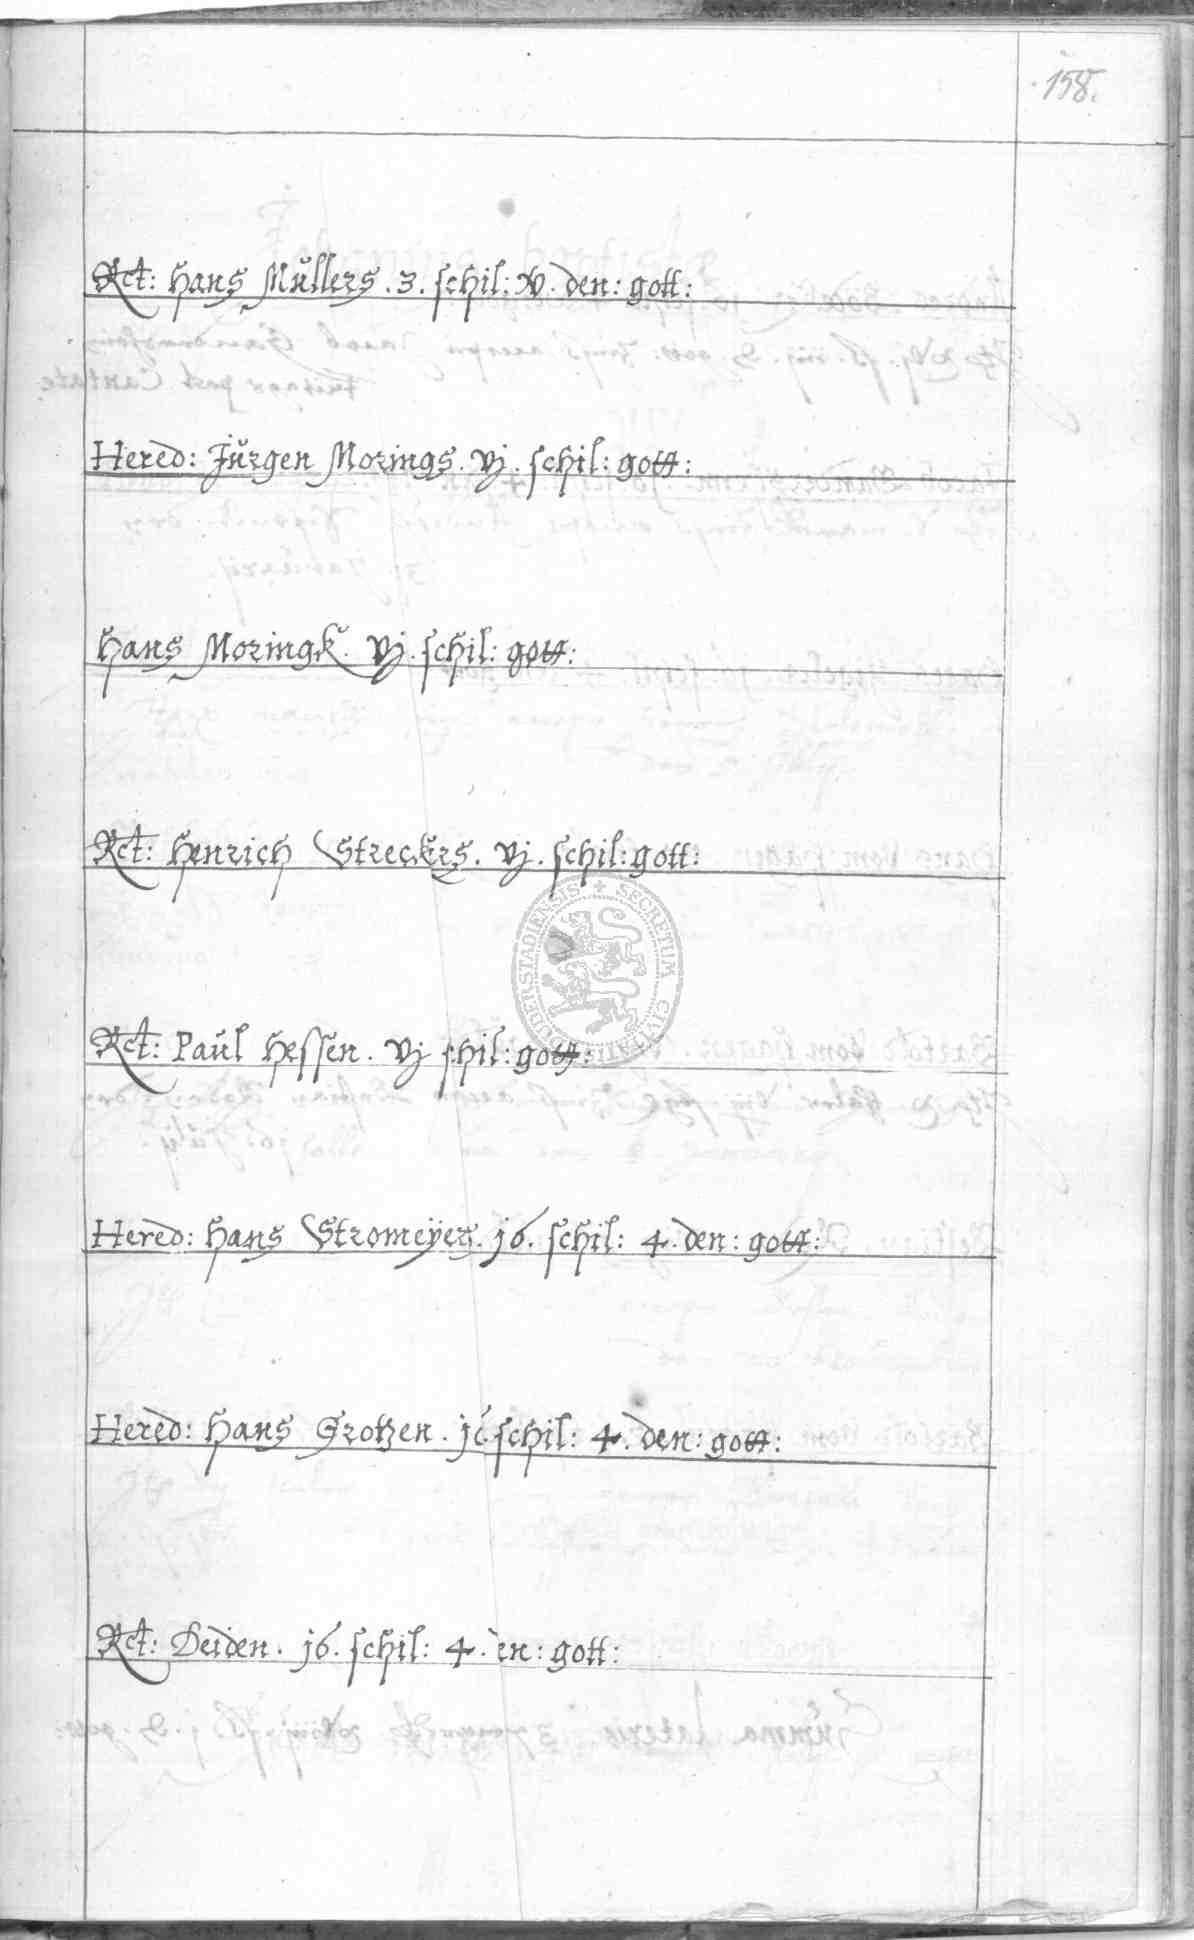 158.
Rct: Hans Müllers. 3. schil: XV. den: gott:
Hered: Jürgen Morings. vj. schil: gott:
Hans Moringk. vj. schil: gott:
Rct: Henrich Streckers. vj. schil: gott:
Rct: Paul Hessen. vj schil: gott:
Hered: Hans Stromeÿers. j6. schil: 4. den: gott:
Hered: Hans Grotzen. j6 schil: 4. den: gott:
Rct: Deiden. j6. schil: 4. den: gott:
SECRETUM CIVITATIS DUDERSTADIENSIS